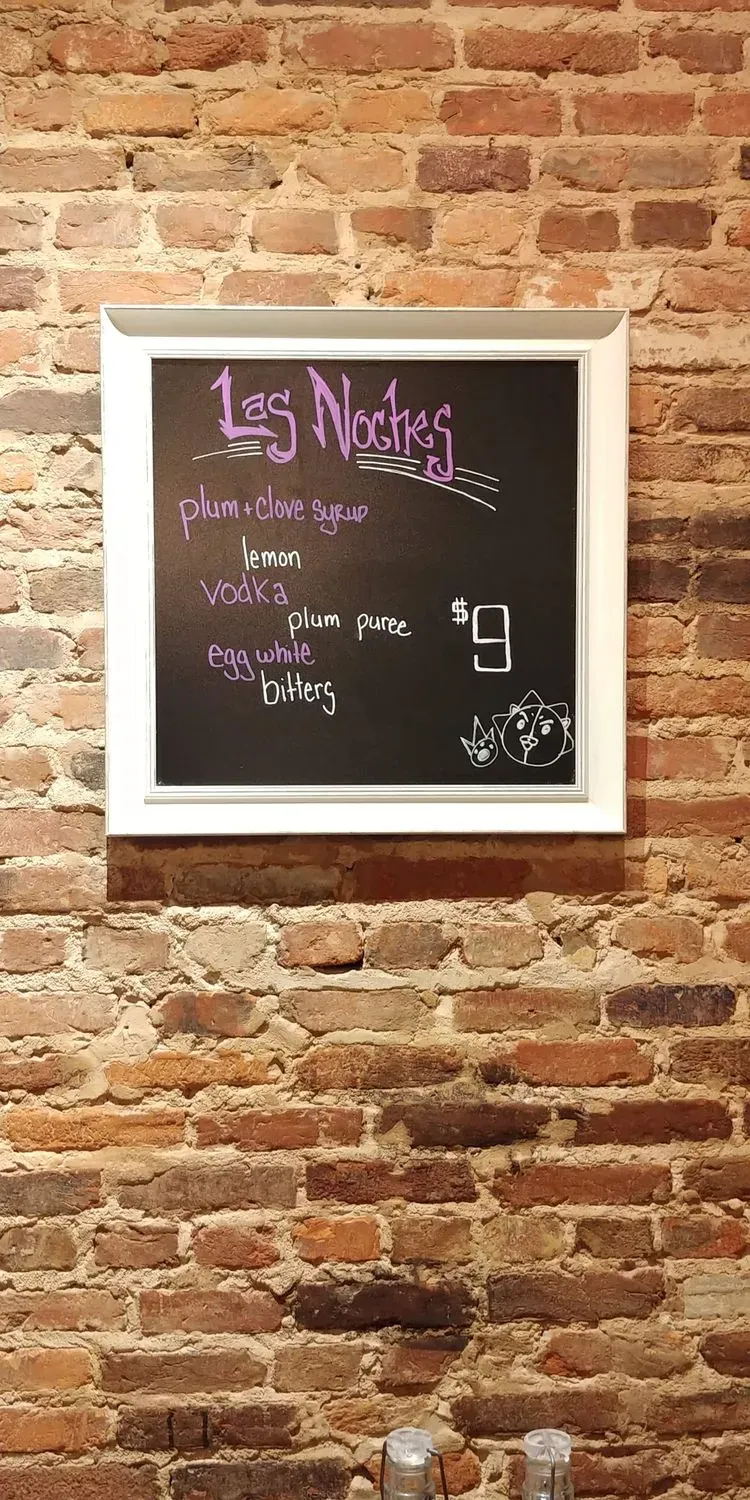 Las Noches
plum + clove syrup
lemon
vodka
plum puree
$9
egg white
bitters